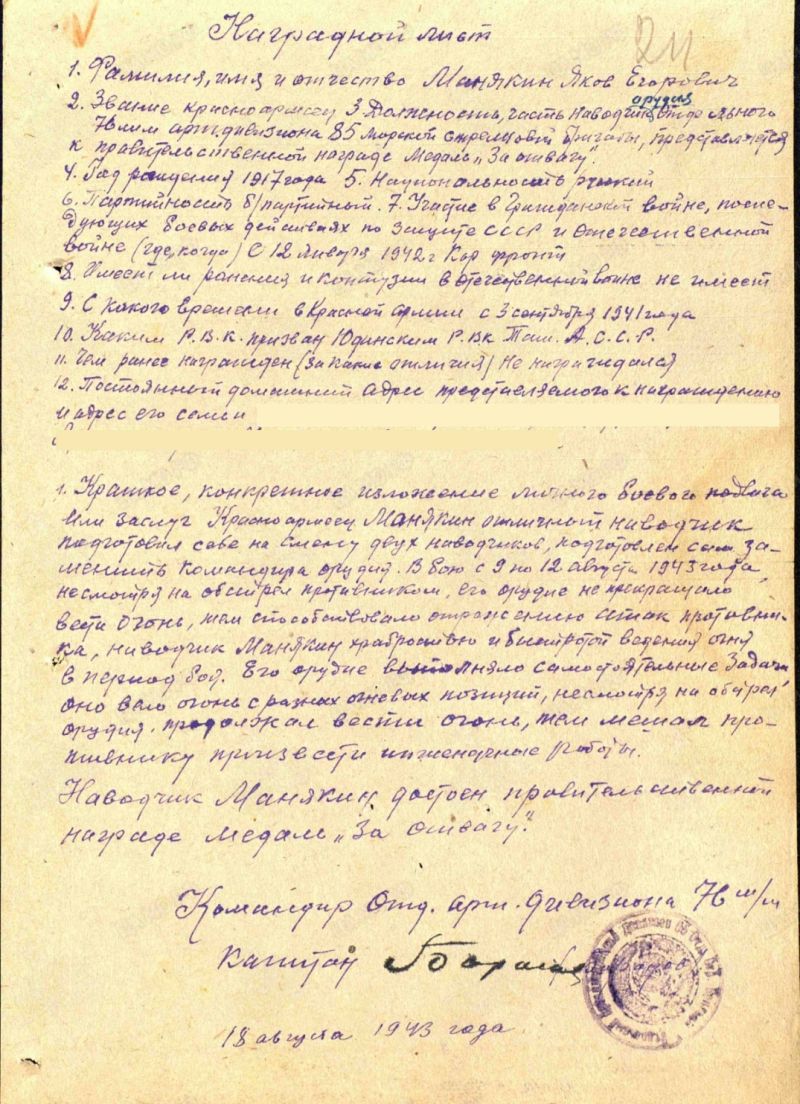 Наградной лист
24
1. Фамилия, имя и отчество Манякин Яков Егорович
орудия
2. Звание красноармеец 3. Должность, часть Наводчик отдельного
76 м/м арт. дивизиона 85 морской стрелковой бригады, представляется
к правительственной награде Медаль „За отвагу".
4. Год рождения 1917 года 5. Национальность русский
6. Партийность б/партийный. 7. Участие в Гражданской войне, после-
дующих боевых действиях по защите СССР и отечественной
войне (где, когда) С 12 января 1942 г Кар фронт
8. Имеет ли ранения и контузии в отечественной войне не имеет
9. С какого времени в Красной армии с 3 сентября 1941 года
10. Каким Р.В.К. призван Юдинским Р.В.К Тат. А.С.С.Р.
11. Чем ранее награжден (за какие отличия) Не награждался
12. Постоянный домашний адрес представляемого к награждению
и адрес его семьи
1. Краткое, конкретное изложение личного боевого подвига
или заслуг Красноармеец Манякин отличный наводчик
подготовил себе на смену двух наводчиков, подготовлен сам за-
менить командира орудия. В бою с 9 по 12 августа 1943 года,
несмотря на обстрел противником, его орудие не прекращало
вести огонь, тем способствовало отражению атак противни-
ка, наводчик Манякин храбростью и быстротой ведения огня
в период боя. Его орудие выполняло самостоятельные задачи,
оно вело огонь с разных огневых позиций, несмотря на обстрел
орудия продолжал вести огонь, тем мешал про-
тивнику произвести инженерные работы.
Наводчик Манякин достоен правительственной
награде медаль „За отвагу".
Командир Отд. арт. дивизиона 76 м/м
капитан
18 августа 1943 года